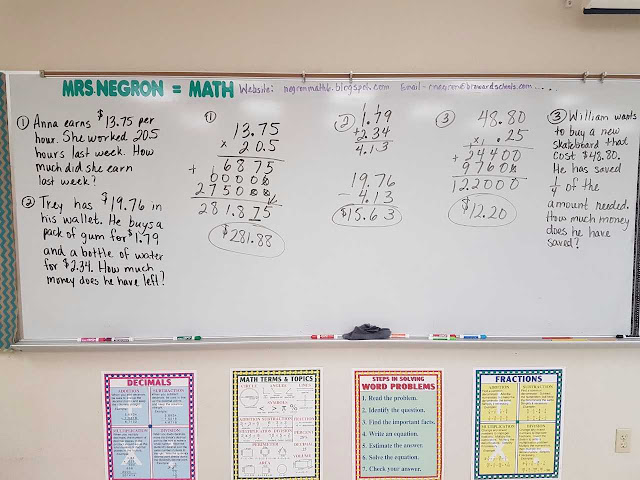 MRS. NEGRON = MATH Website: negronmath6.blogspot.com Email-rnegron@browardschools.com
① Anna earns $13.75 per
hour. She worked 20.5
hours last week. How
much did she earn
last week?
② Trey has $19.76 in
his wallet. He buys a
pack of gum for $1.79
and a bottle of water
for $2.34. How much
money does he have left?
①
13.75
x 20.5
6875
+ 00000
275000
281.875
$281.88
②
1 1
1.79
+2.34
4.13
19.76
- 4.13
$15.63
③
48.80
x .25
24400
+ 97600
122000
$12.20
③ William wants
to buy a new
skateboard that
cost $48.80.
He has saved
1/4 of the
amount needed.
How much money
does he have
saved?
DECIMALS
ADDITION SUBTRACTION
MULTIPLICATION DIVISION
MATH TERMS & TOPICS
CIRCLE ANGLES LINES
SYMBOLS
ADDITION SUBTRACTION FRACTIONS
PERIMETER
VOLUME
AREA
STEPS IN SOLVING
WORD PROBLEMS
1. Read the problem.
2. Identify the question.
3. Find the important facts.
4. Write an equation.
5. Estimate the answer.
6. Solve the equation.
7. Check your answer.
FRACTIONS
ADDITION SUBTRACTION
MULTIPLICATION DIVISION